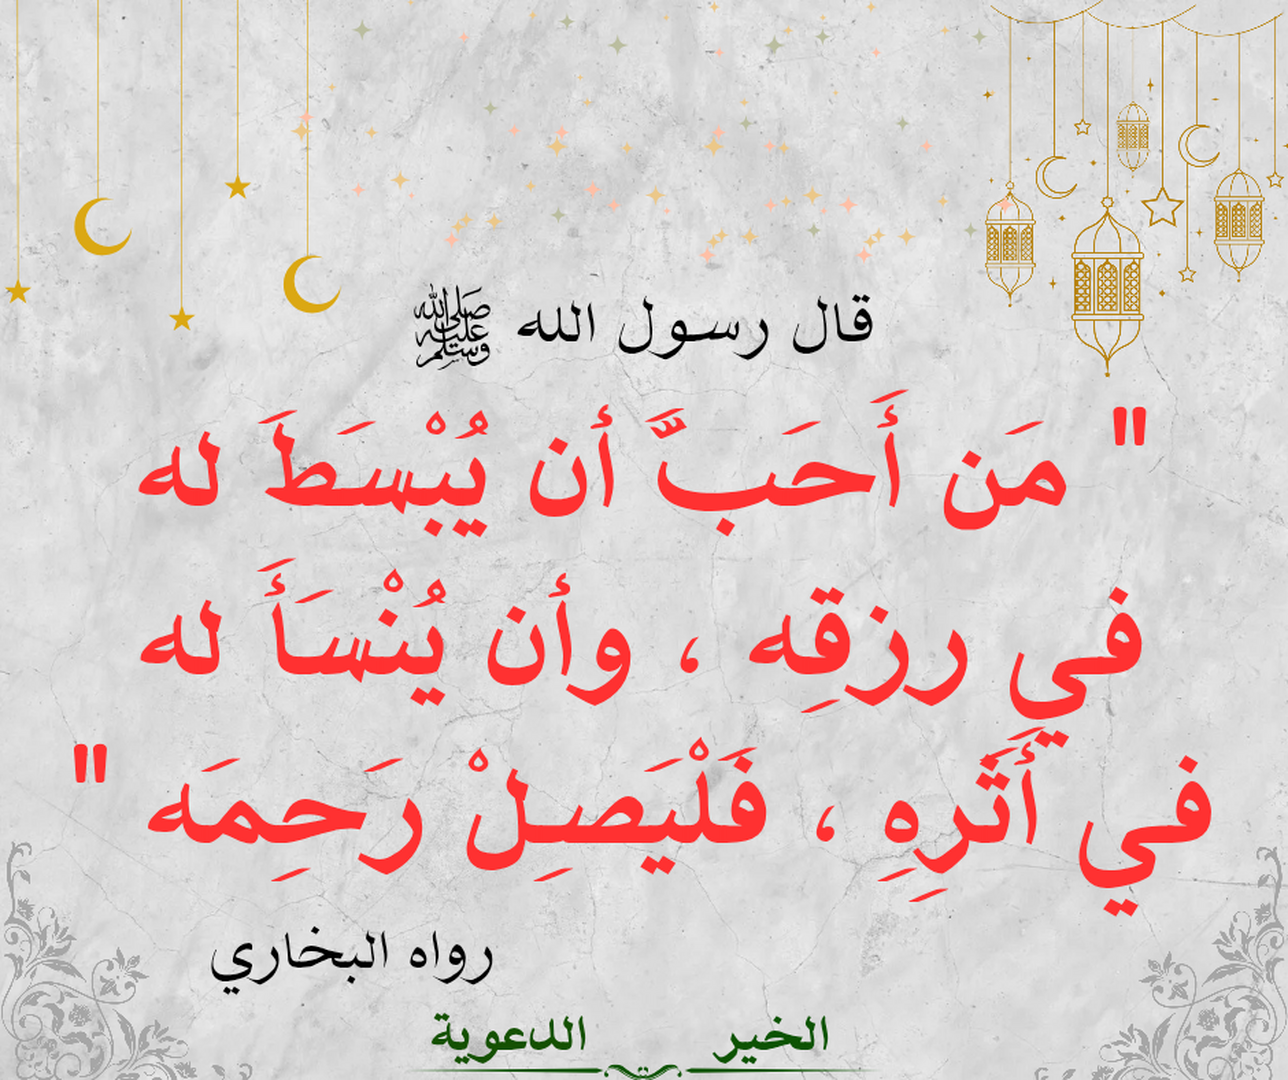 قال رسول الله ﷺ
" مَن أَحَبَّ أن يُبْسَطَ له
في رزقِه ، وأن يُنْسَأَ له
في أَثَرِهِ ، فَلْيَصِلْ رَحِمَه "
رواه البخاري
الخير الدعوية